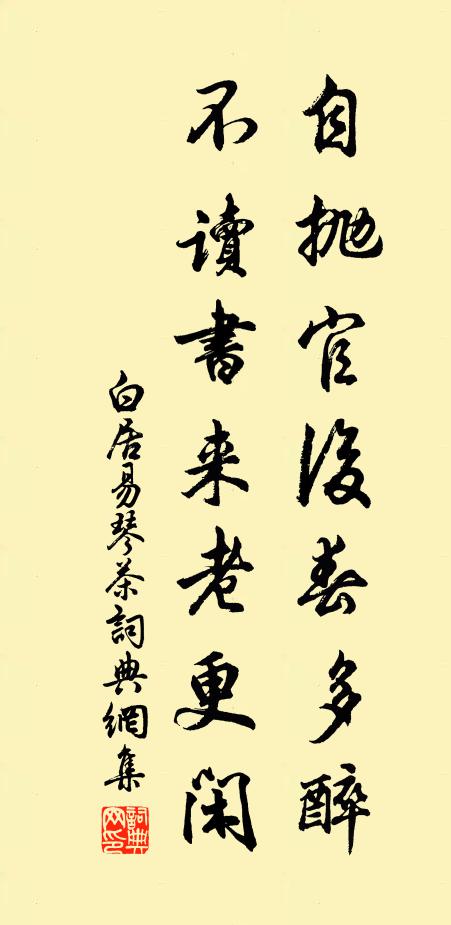 自抛官後春多醉
不讀書来老更閑
白居易琴茶詞典網集
詞典网印